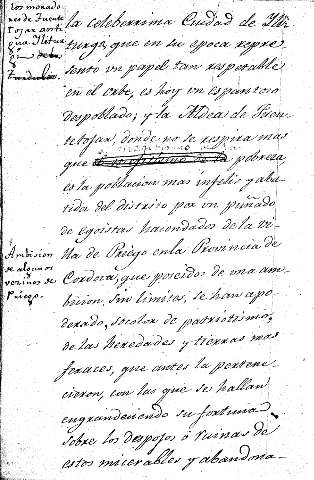 los morado
res de Fuente
Tojar anti
gua Ilitur
la celeberrima Ciudad de Ili
turgi, que en su epoca repre
sento un papel tan respetable
en el orbe, es hoy un espantoso
despoblado; y la Aldea de Fuen
tetojar, donde no se respira mas
que la pobreza
es la poblacion mas infeliz y aba
tida del distrito por un puñado
de egoistas hacendados de la vi
lla de Priego en la Provincia de
Cordova, que poseidos de una am
bicion, sin limites, se han apo
derado, socolor de patriotismo,
de las heredades y tierras mas
feraces, que antes la pertene
cieron, con las que se hallan
engrandeciendo su fortuna
sobre los despojos ó ruinas de
estos miserables y abandona-
Ambision
de algunos
vezinos de
Priego.